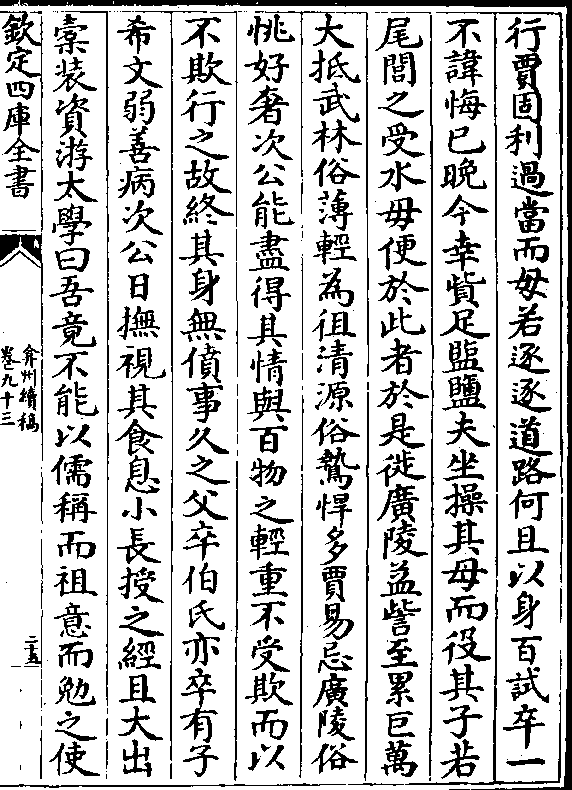 行賈固利過當而毋若逐逐道路何且以身百試卒一
不諱悔已晚今幸貲足監鹽夫坐操其母而役其子若
尾閭之受水毋便於此者於是徙廣陵益訾至累巨萬
大抵武林俗薄輕為徂清源俗鷙悍多賈易忌廣陵俗
恌好奢次公能盡得其情與百物之輕重不受欺而以
不欺行之故終其身無僨事久之父卒伯氏亦卒有子
希文弱善病次公日撫視其食息小長授之經且大出
橐裝資游太學曰吾竟不能以儒稱而祖意而勉之使
欽定四庫全書
弇州續稿
卷九十三
二五